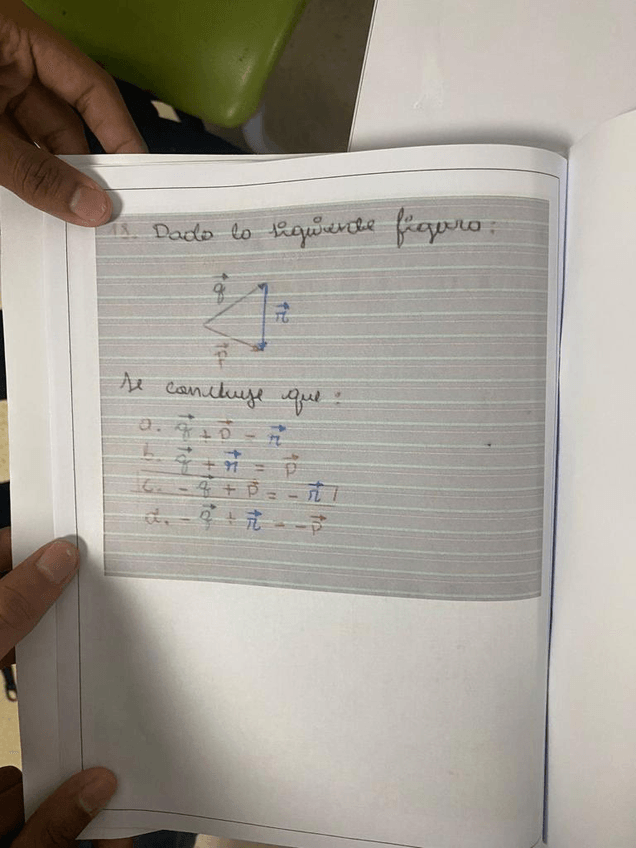 18. Dada la siguiente figura:
q⃗
n⃗
p⃗
se concluye que:
a. q⃗ + p⃗ = n⃗
b. q⃗ + n⃗ = p⃗
c. - q⃗ + p⃗ = - n⃗
d. - q⃗ + n⃗ = - p⃗